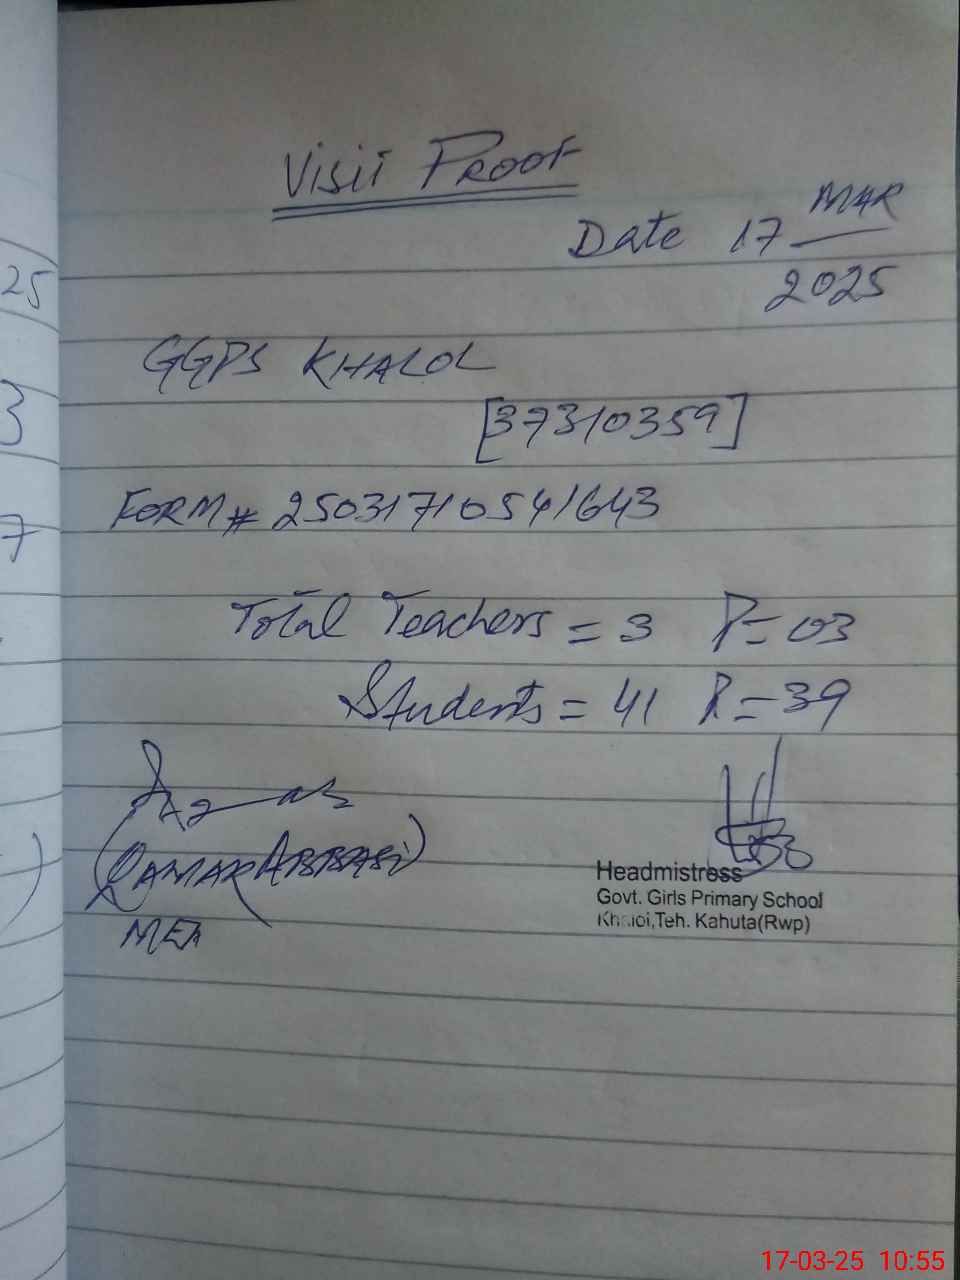 Visit Proof
Date 17 MAR
2025
GGPS KHALOL
[37310359]
FORM # 25031710541643
Total Teachers = 3 P = 03
Students = 41 P = 39
(QAMAR ABBASi)
MEA
Headmistress
Govt. Girls Primary School
Teh. Kahuta(Rwp)
25
3
7
17-03-25 10:55